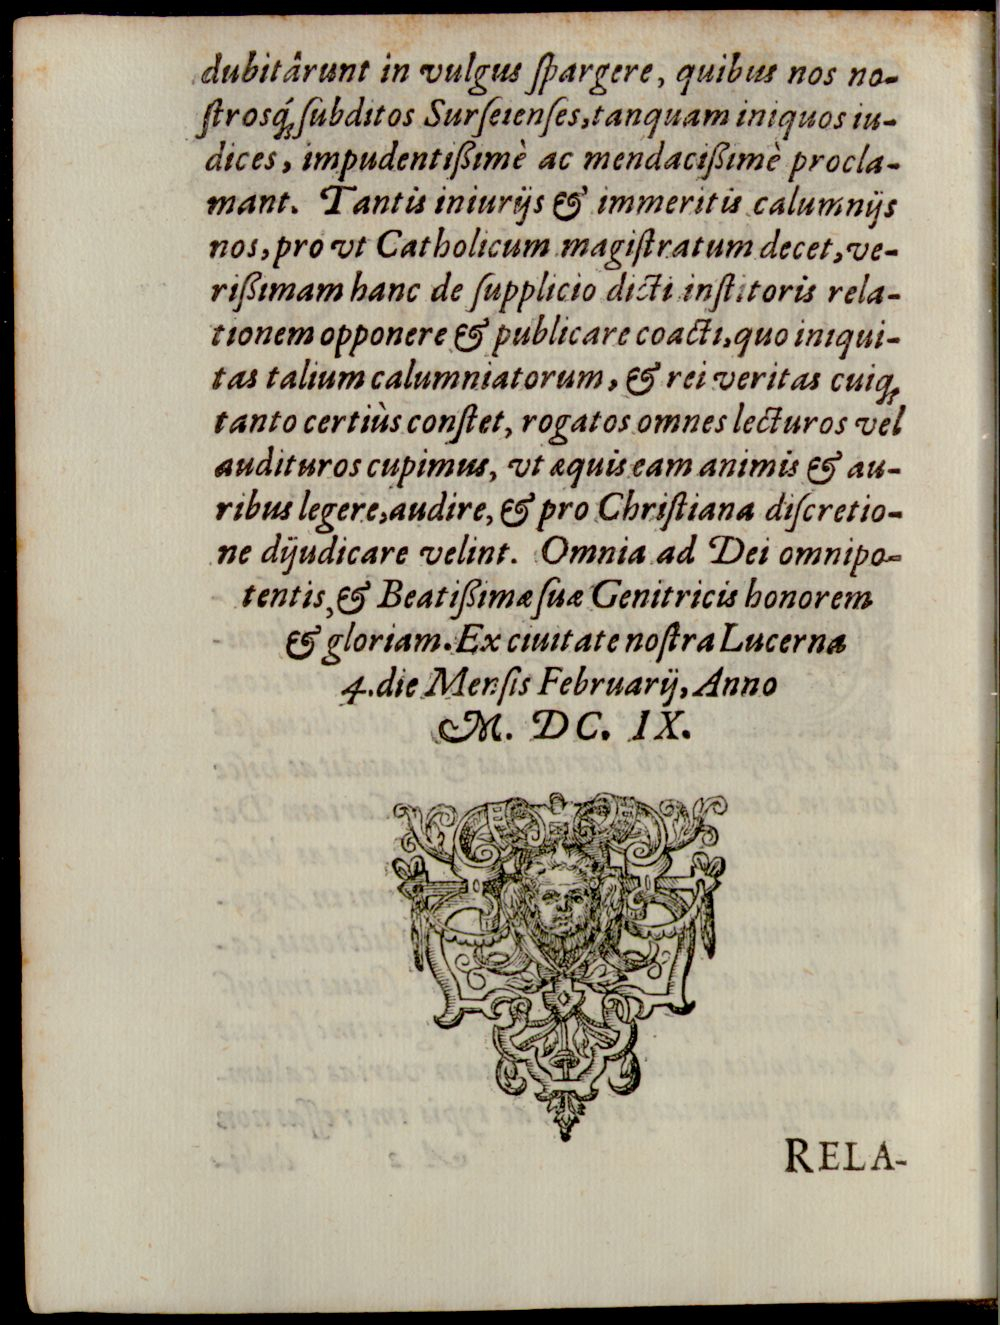 dubitârunt in vulgus ſpargere, quibus nos no-
ſtrosq́; ſubditos Surſeienſes, tanquam iniquos iu-
dices, impudentißimè ac mendacißimè procla-
mant. Tantis iniurijs & immeritis calumnijs
nos, pro vt Catholicum magiſtratum decet, ve-
rißimam hanc de ſupplicio dicti inſtitoris rela-
tionem opponere & publicare coacti, quo iniqui-
tas talium calumniatorum, & rei veritas cuiq;
tanto certiùs conſtet, rogatos omnes lecturos vel
audituros cupimus, vt æquis eam animis & au-
ribus legere, audire, & pro Chriſtiana diſcretio-
ne dijudicare velint. Omnia ad Dei omnipo-
tentis, & Beatißimæ ſuæ Genitricis honorem
& gloriam. Ex ciuitate noſtra Lucerna
4. die Menſis Februarij, Anno
M. DC. IX.
RELA-